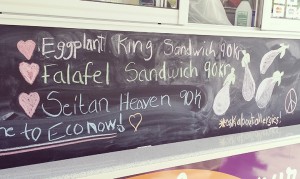 Eggplant King Sandwich 90kr
Falafel Sandwich 90kr
Seitan Heaven 90k
me to Eco now!
#askaboutallergies!